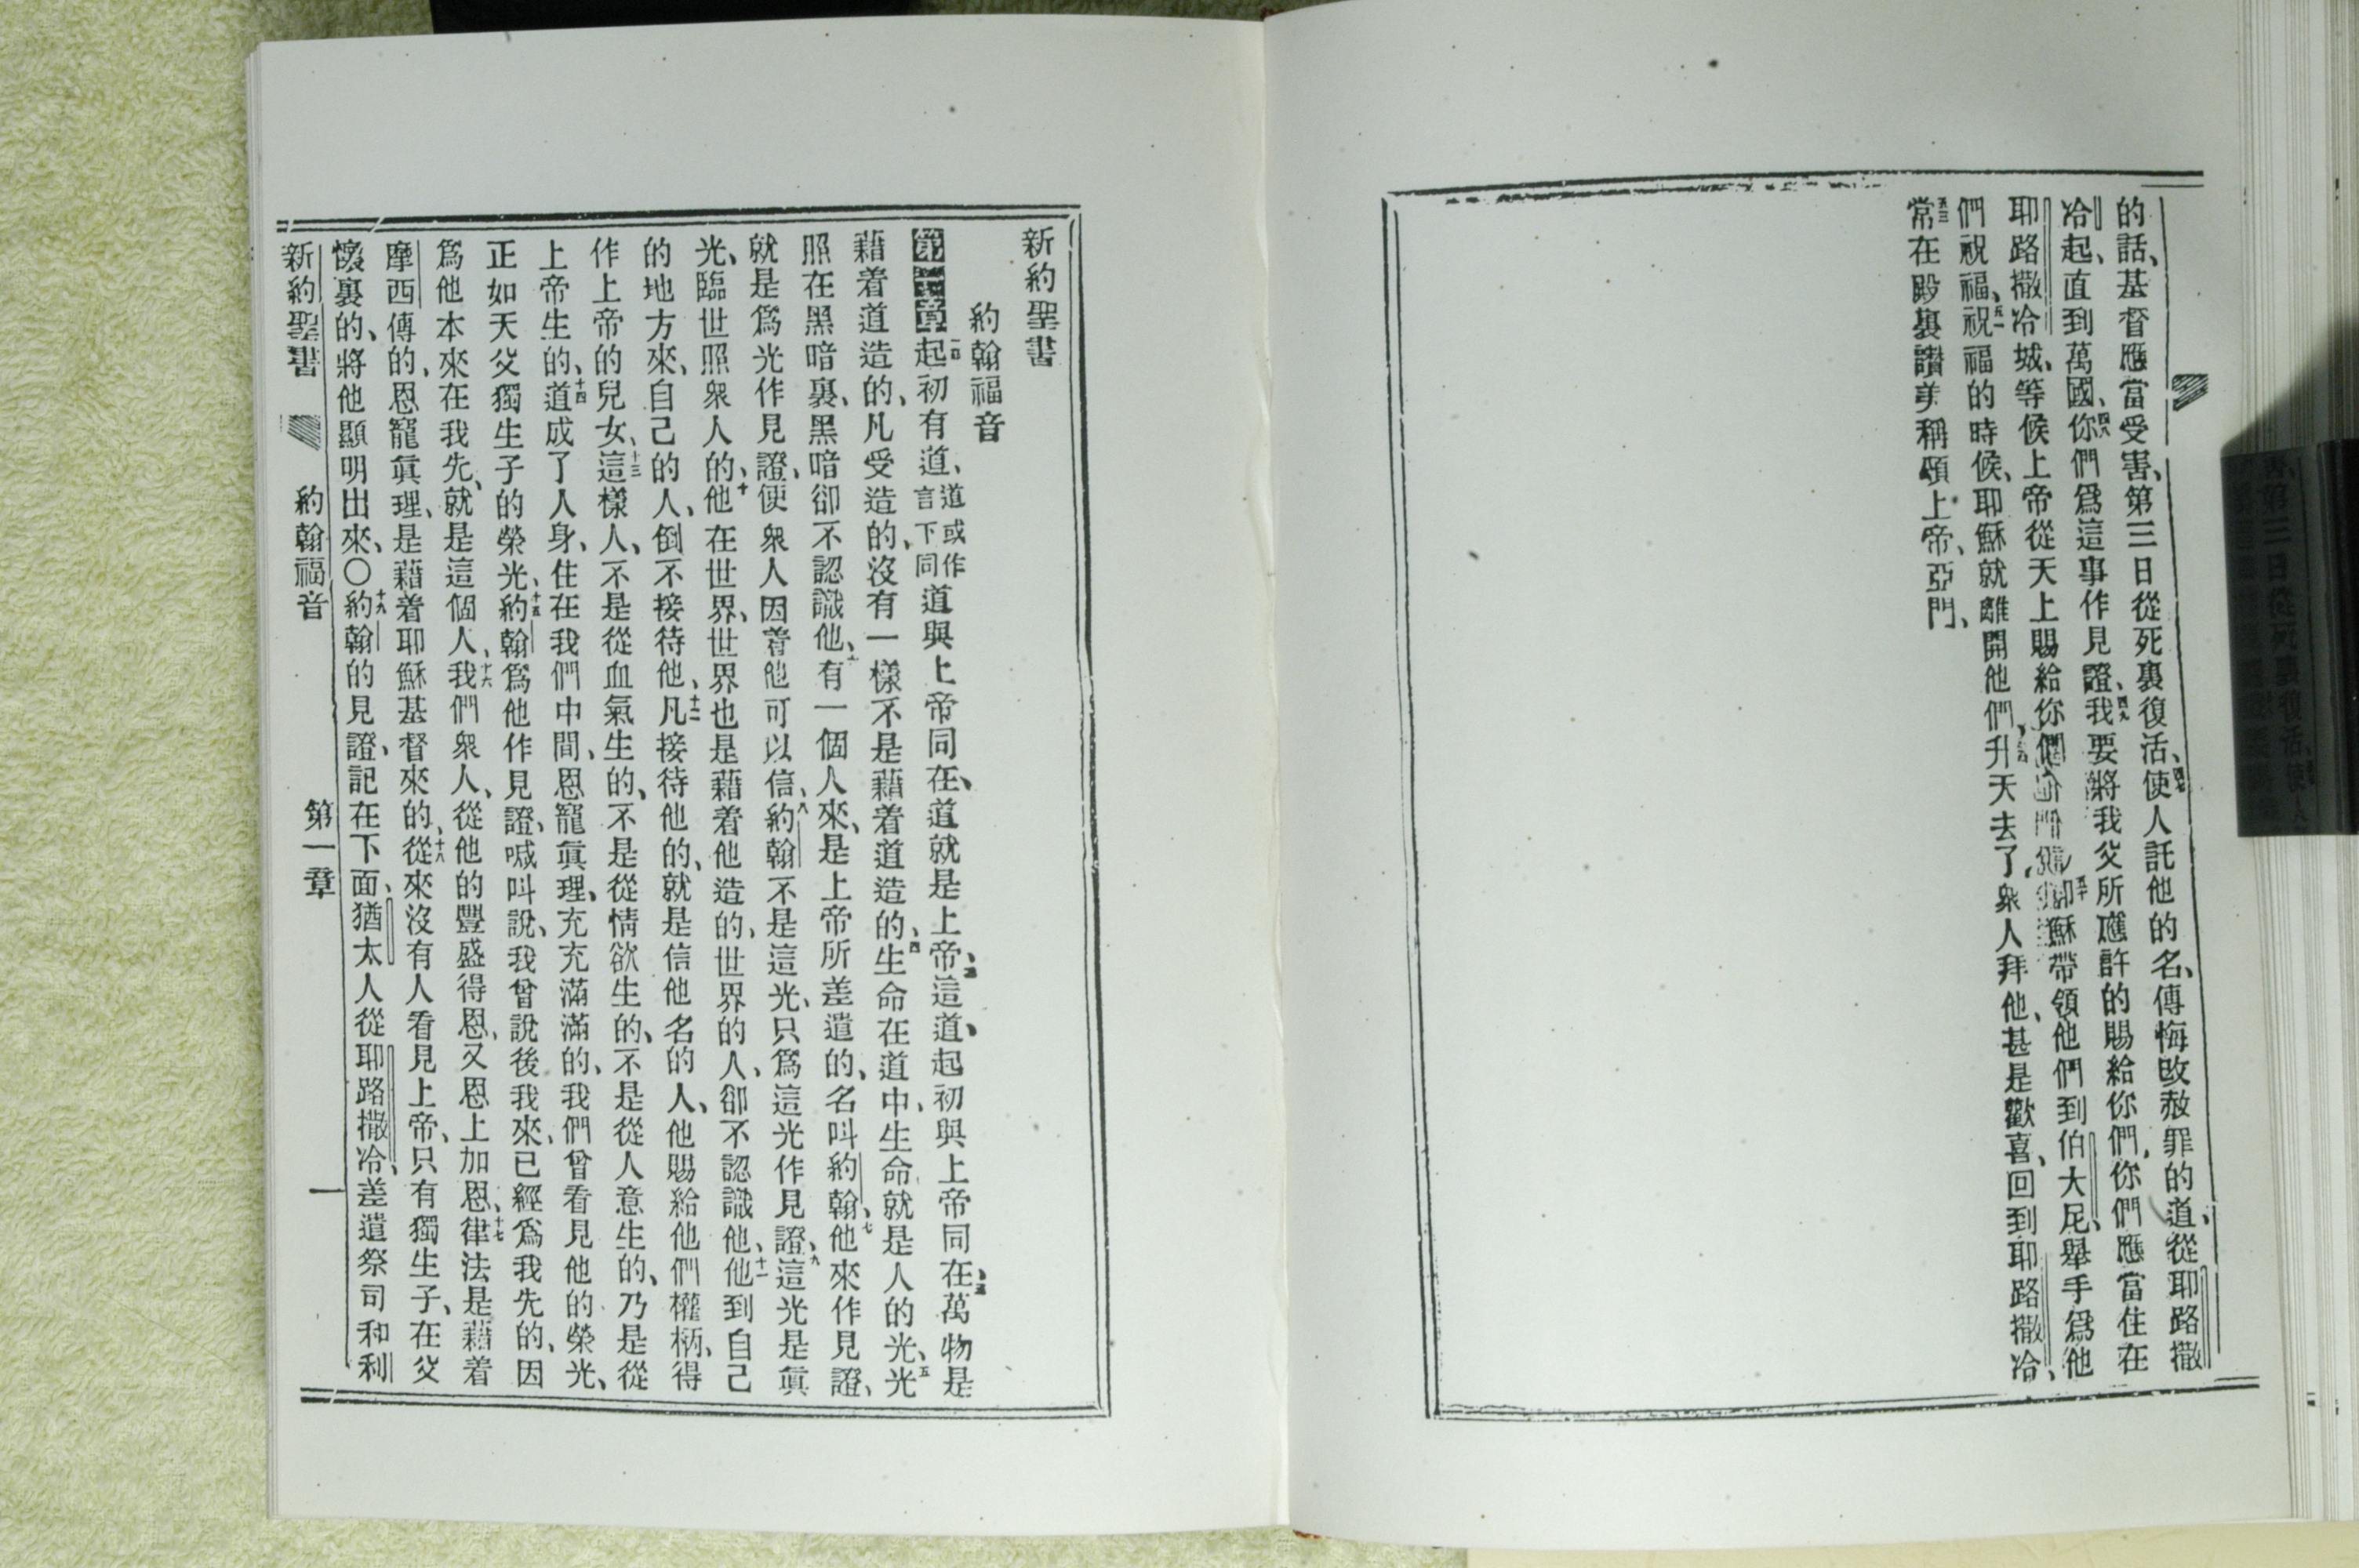 的話、基督應當受害、第三日從死裏復活、四七使人託他的名、傳悔改赦罪的道、從耶路撒
冷起、直到萬國、四八你們爲這事作見證、四九我要將我父所應許的賜給你們、你們應當住在
耶路撒冷城、等候上帝從天上賜給你們 五十耶穌帶領他們到伯大尼、舉手爲他
們祝福、五一祝福的時候、耶穌就離開他們、升天去了、衆人拜他、甚是歡喜、回到耶路撒冷、
五三常在殿裏讚美稱頌上帝、亞門、
新約聖書
約翰福音
第一章起初有道、道或作言下同道與上帝同在、道就是上帝、二這道、起初與上帝同在、三萬物是
藉着道造的、凡受造的、沒有一樣不是藉着道造的、四生命在道中、生命就是人的光、五光
照在黑暗裏、黑暗卻不認識他、六有一個人來、是上帝所差遣的、名叫約翰、七他來作見證、
就是爲光作見證、使衆人因着他可以信、八約翰不是這光、只爲這光作見證、九這光是眞
光、臨世照衆人的、十他在世界、世界也是藉着他造的、世界的人、卻不認識他、十一他到自己
的地方來、自己的人、倒不接待他、十二凡接待他的、就是信他名的人、他賜給他們權柄、得
作上帝的兒女、十三這樣人、不是從血氣生的、不是從情欲生的、不是從人意生的、乃是從
上帝生的、十四道成了人身、住在我們中間、恩寵眞理、充充滿滿的、我們曾看見他的榮光、
正如天父獨生子的榮光、十五約翰爲他作見證、喊叫說、我曾說後我來、已經爲我先的、因
爲他本來在我先、就是這個人、十六我們衆人、從他的豐盛得恩、又恩上加恩、十七律法是藉着
摩西傳的、恩寵眞理、是藉着耶穌基督來的、十八從來沒有人看見上帝、只有獨生子、在父
懷裏的、將他顯明出來、〇十九約翰的見證、記在下面、猶太人從耶路撒冷、差遣祭司和利
新約聖書 約翰福音 第一章 一